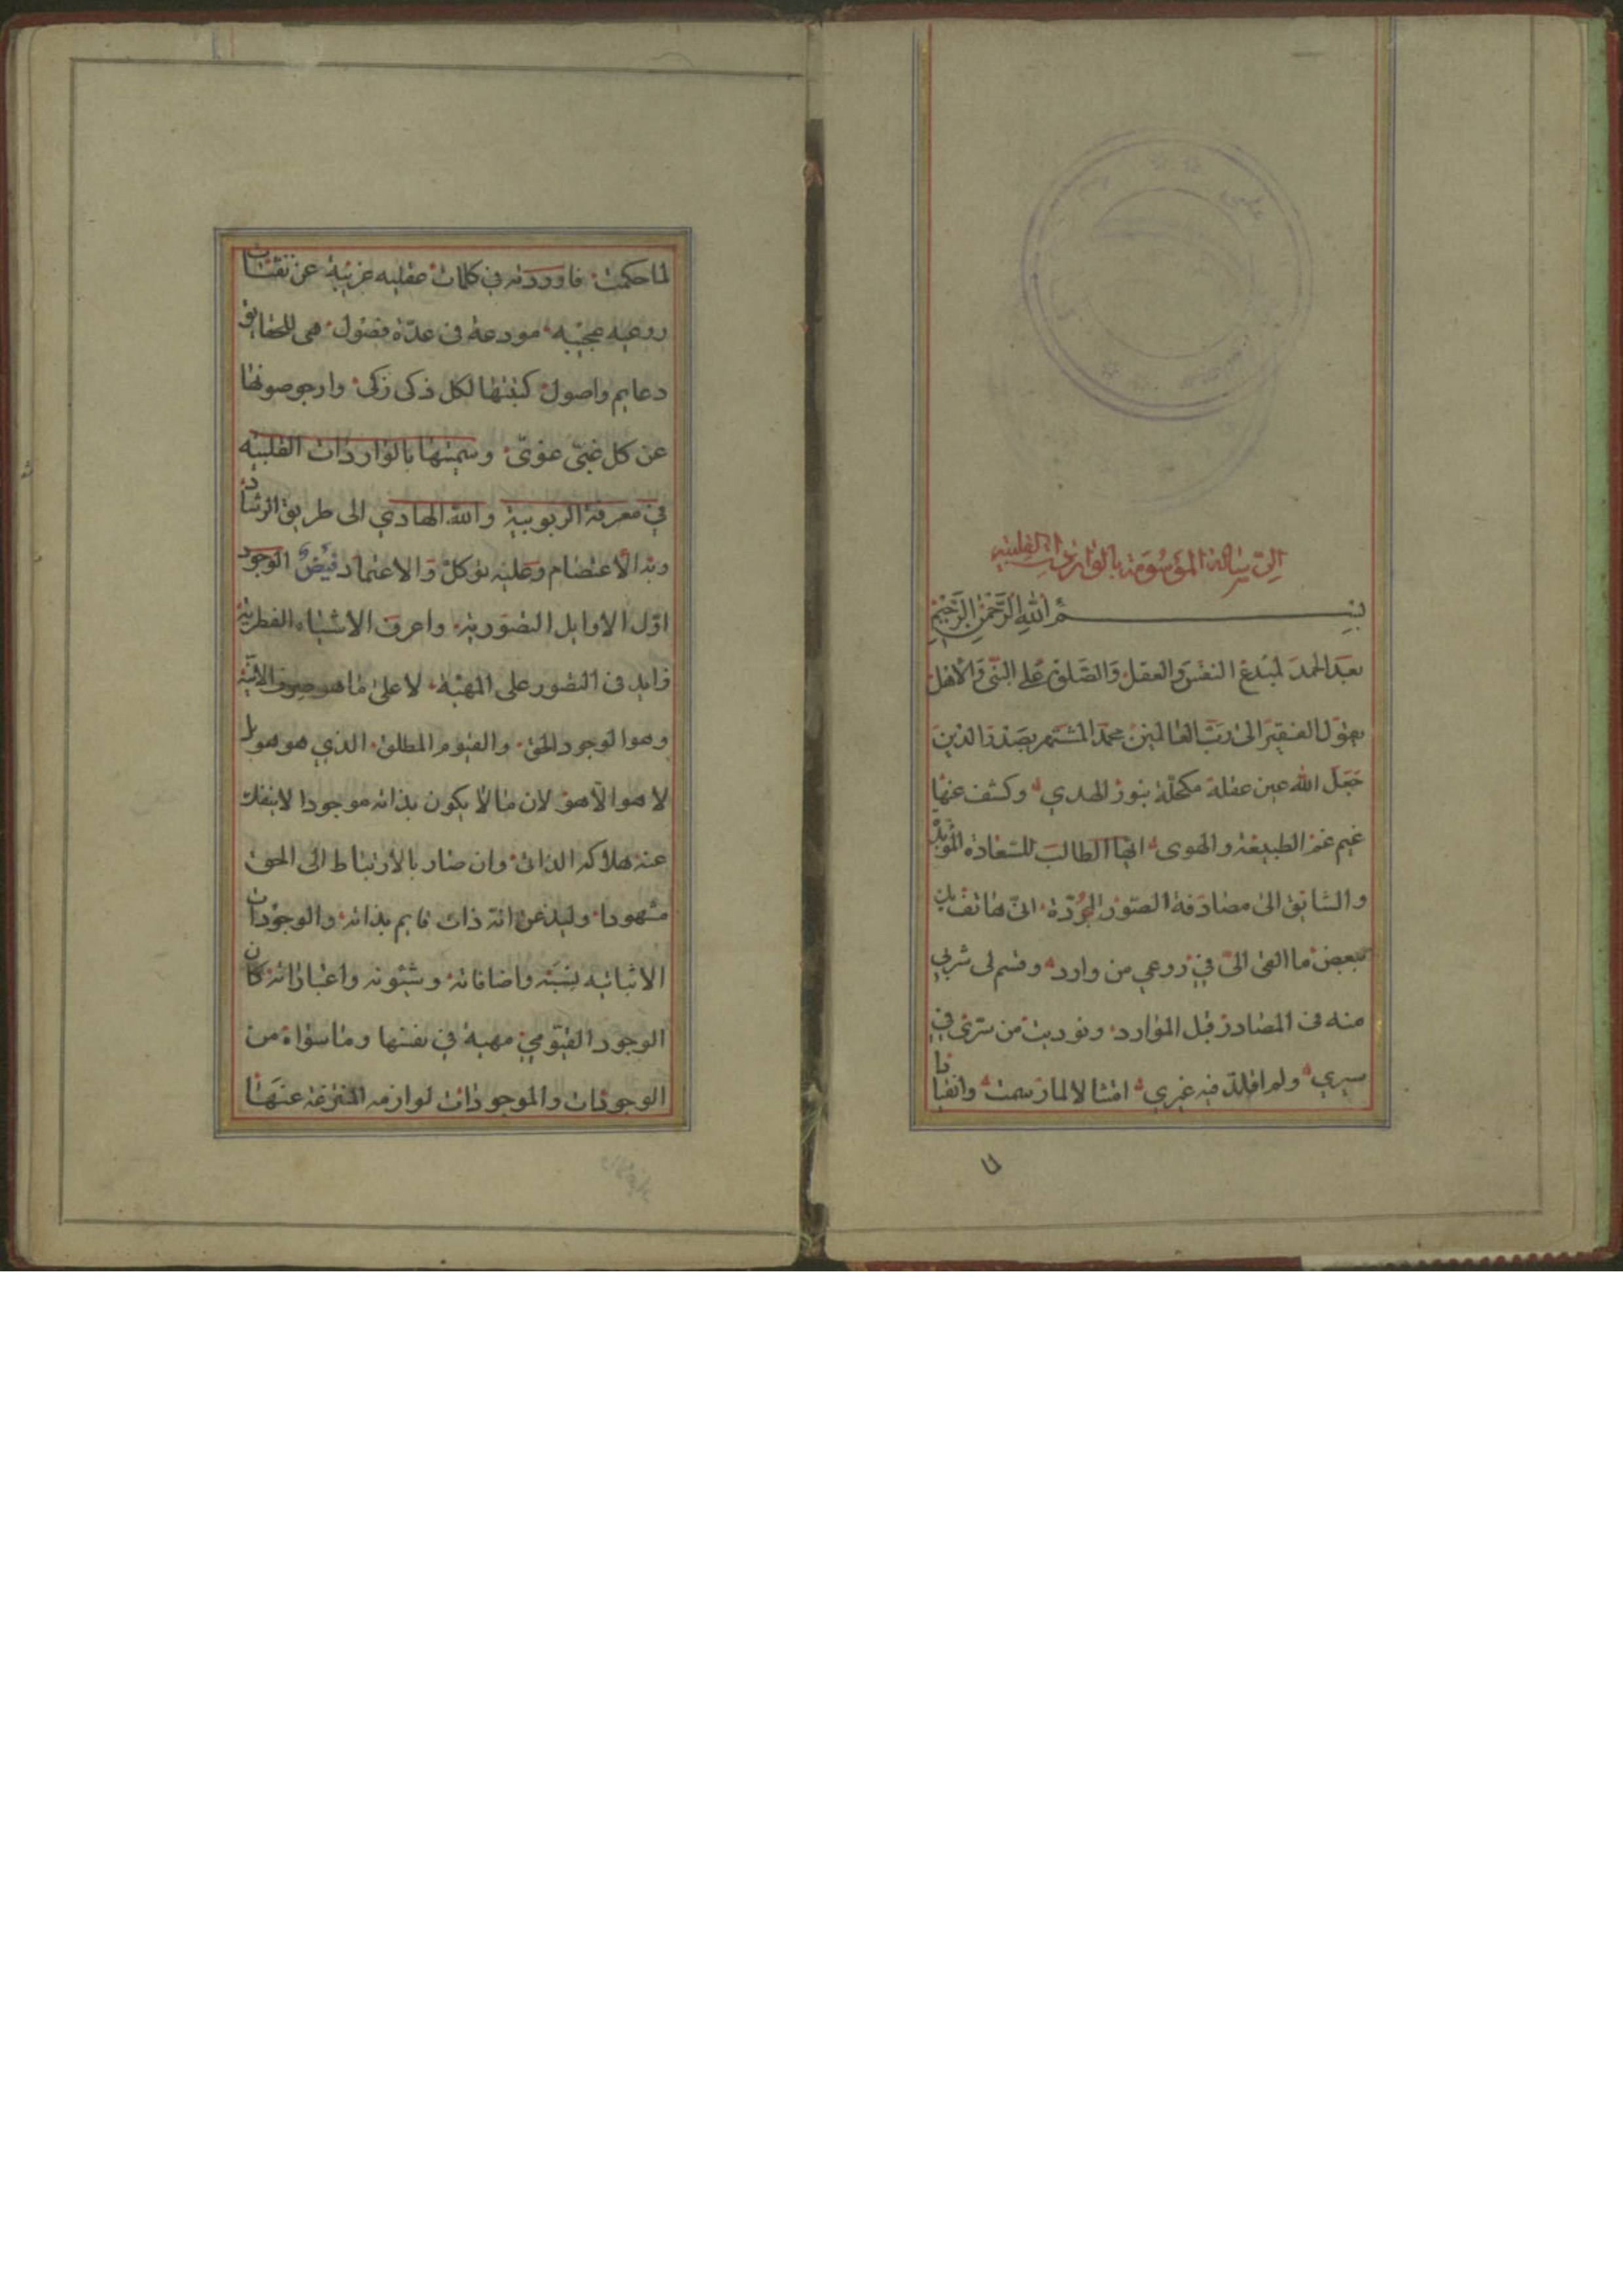 الرسالة الموسومة بالواردات القلبيه
بسم الله الرحمن الرحيم
بعد الحمد لمبدع النفس والعقل والصلوة على النبى والاهل
يقول الفقير الى رب العالمين محمد المشتهر بصدر الدين
جعل الله عين عقله مكحلة بنور الهدي وكشف عنها
غيم غم الطبيعة والهوى ايها الطالب للسعادة المؤبدة
والشايق الى مصادفة الصور المجردة انى هاتف
ببعض ما القى الى في روعي من وارد وقسم لى شربي
منه فى المصادر قبل الموارد ونوديت من سرى في
سيري ولم اقلد فيه غيري امتثالا لما رسمت وانقيادا
لما حكمت فاوردته في كلمات عقليه غريبة عن نفثات
روعيه عجيبه مودعة فى عدة فصول هى للحقايق
دعايم واصول كتبتها لكل ذكى زكى وارجو صونها
عن كل غبى غوى وسميتها بالواردات القلبيه
في معرفة الربوبية والله الهادي الى طريق الرشاد
وبه الاعتصام وعليه توكل والاعتماد فيض الوجود
اول الاوايل التصورية واعرف الاشياء الفطرية
زايد فى التصور على المهية لا على ما هو صرف الانية
وهو الوجود الحق والقيوم المطلق الذي هو هو بل
لا هو الا هو لان ما لا يكون بذاته موجودا لا ينفك
عنه هلاكه الذاتى وان صار بالارتباط الى الحق
مشهودا وليذعن انه ذات قايم بذاته والوجودات
الاثباتيه نسبته واضافاته وشئونه واعتباراته كان
الوجود القيومي مهية في نفسها وما سواه من
الوجودات والموجودات لوازمه المنتزعة عنها